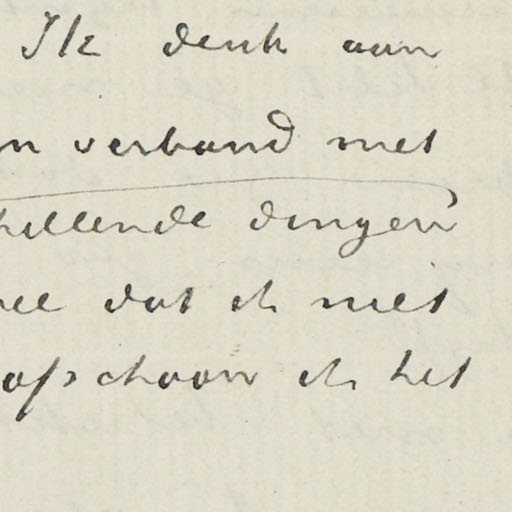 Ik denk aan
n verband met
hillende dingen
ee dat ik met
ofschoon ik het